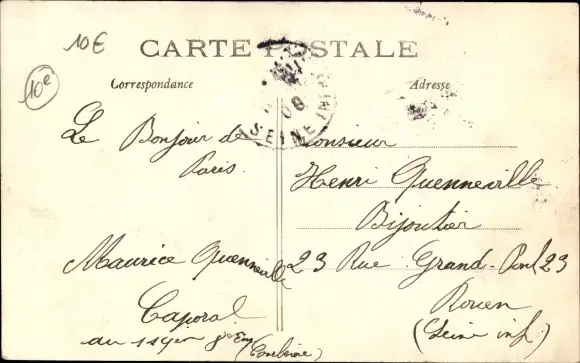 10€
10€
CARTE POSTALE
Correspondance
Adresse
SEINE INF
08
Le Bonjour de
Paris.
Maurice Quenneville
Caporal
au
Monsieur
Henri Quenneville
Bijoutier
23 Rue Grand-Pont 23
Rouen
(Seine inf)